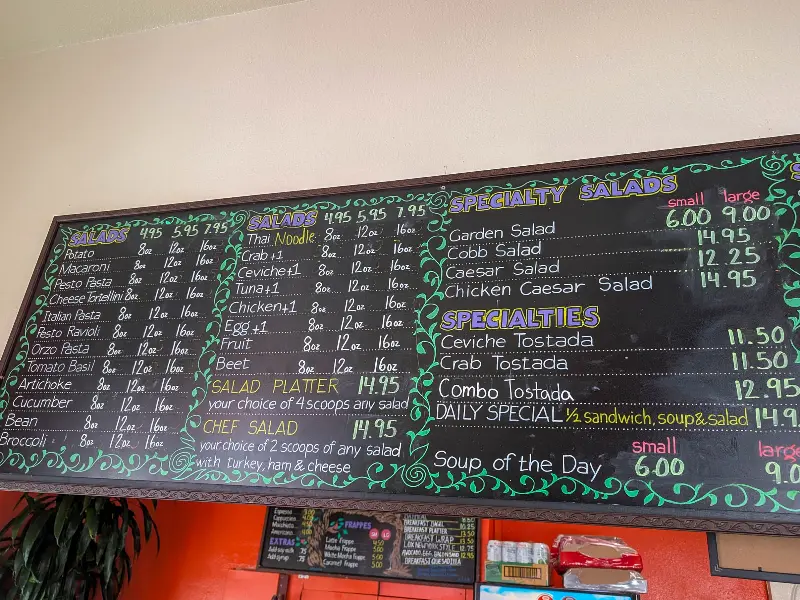 SALADS 4.95 5.95 7.95
Potato 8oz 12oz 16oz
Macaroni 8oz 12oz 16oz
Pesto Pasta 8oz 12oz 16oz
Cheese Tortellini 8oz 12oz 16oz
Italian Pasta 8oz 12oz 16oz
Pesto Ravioli 8oz 12oz 16oz
Orzo Pasta 8oz 12oz 16oz
Tomato Basil 8oz 12oz 16oz
Artichoke 8oz 12oz 16oz
Cucumber 8oz 12oz 16oz
Bean 8oz 12oz 16oz
Broccoli 8oz 12oz 16oz
SALADS 4.95 5.95 7.95
Thai Noodle 8oz 12oz 16oz
Crab +1 8oz 12oz 16oz
Ceviche +1 8oz 12oz 16oz
Tuna +1 8oz 12oz 16oz
Chicken +1 8oz 12oz 16oz
Egg +1 8oz 12oz 16oz
Fruit 8oz 12oz 16oz
Beet 8oz 12oz 16oz
SALAD PLATTER 14.95
your choice of 4 scoops any salad
CHEF SALAD 14.95
your choice of 2 scoops of any salad
with turkey, ham & cheese
SPECIALTY SALADS
small large
Garden Salad 6.00 9.00
Cobb Salad 14.95
Caesar Salad 12.25
Chicken Caesar Salad 14.95
SPECIALTIES
Ceviche Tostada 11.50
Crab Tostada 11.50
Combo Tostada 12.95
DAILY SPECIAL ½ sandwich, soup & salad 14.9
small large
Soup of the Day 6.00 9.0
Espresso
FRAPPES
Latte Frappe 4.50
Mocha Frappe 5.00
White Mocha Frappe 5.00
Caramel Frappe 5.00
EXTRAS
BREAKFAST BAGEL
BREAKFAST PLATTER
BREAKFAST WRAP
LOX NEW YORK STYLE
BREAKFAST QUESADILLA